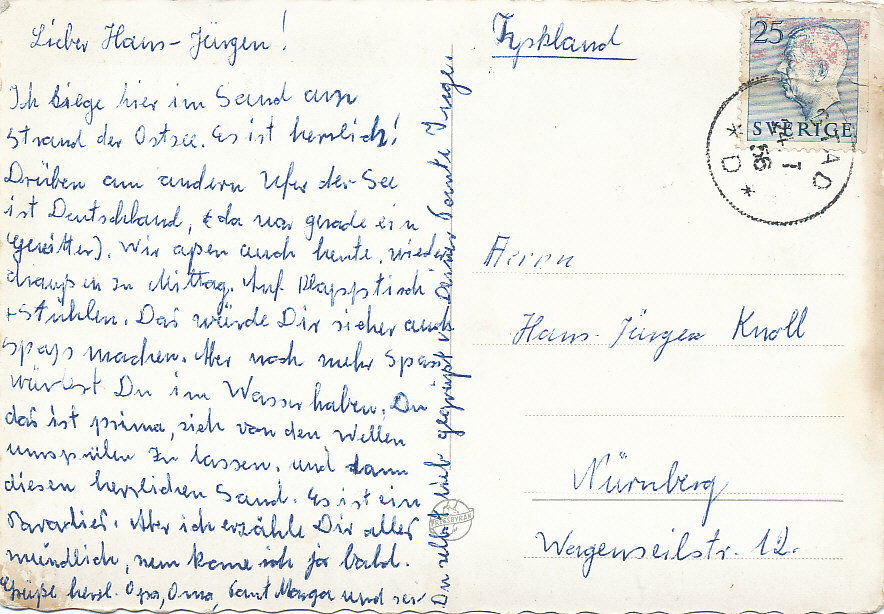 Lieber Hans-Jürgen!
Ich liege hier im Sand am
Strand der Ostsee. Es ist herrlich!
Drüben am andern Ufer der See
ist Deutschland, (da war gerade ein
Gewitter). Wir aßen auch heute wieder
draußen zu Mittag. Auf Klapptisch
+ Stühlen. Das würde Dir sicher auch
Spaß machen. Aber noch mehr Spass
würdest Du im Wasser haben. Du
das ist prima, sich von den Wellen
umspülen zu lassen, und dann
diesen herrlichen Sand. Es ist ein
Paradies. Aber ich erzähle Dir alles
mündlich, nun kome ich ja bald.
Grüße herzl. Opa, Oma, Tant Marga und sei
Du selbst lieb gegrüßt v. Deiner Tante Inge.
Tyskland
25
SVERIGE
STAD
56
* D *
Herrn
Hans-Jürgen Knoll
Nürnberg
Wagenseilstr. 12.